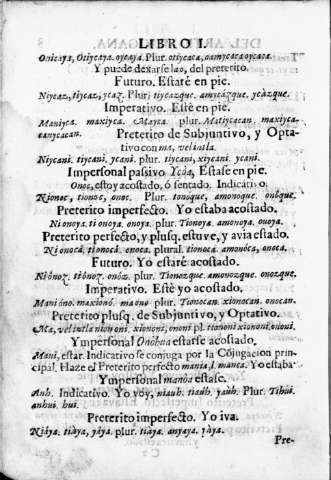 LIBRO I.
Onicaya, Oticyaya. oycaya. Plur. oticyaca, oamycaca oycaca.
Y puede dexarse lao, del preterito.
Futuro. Estaré en pie.
Niycaz, tiycaz, ycaz. Plur. tiycazque. amycazque. ycazque.
Imperativo. Estè en pie.
Maniyca. maxiyca. Mayca. plur. Matiycacan. maxiyca-
canycacan. Preterito de Subjuntivo, y Opta-
tivo con ma, velintla.
Niycani. tiycani. ycani. plur. tiycani, xiycani. ycani.
Impersonal passivo Ycoa, Estase en pie.
Onoc, estoy acostado, ò sentado. Indicativo.
Nionoc, tionoc, onoc. Plur. tonoque, amonoque, onoque.
Preterito imperfecto. Yo estaba acostado.
Ni onoya. ti onoya. onoya. Plur. Tionoya. amonoya. onoya.
Preterito perfecto, y plusq. estuve, y avia estado.
Ni onoca. tionocà. onoca. plural. tionoca. amonòca, onoca.
Futuro. Yo estaré acostado.
Niònoz. tiònoz. onòz. plur. Tionozque. amonozque. onozque.
Imperativo. Estè yo acostado.
Maniòno. maxionò. maono plur. Tionocan. xionocan. onocan.
Preterito plusq. de Subjuntivo, y Optativo.
Ma, velintla nicnoni, xiononi, ononi pl. tiononi xiononi, ononi.
Ympersonal Onohua estarse acostado.
Mani, estar. Indicativo se conjuga por la Cõjugacion prin-
cipal. Haze el Preterito perfecto mania, l. manca. Yo estaba
Ympersonal manòa estase.
Anh. Indicativo. Yo voy, niauh. tiauh. yauh. Plur. Tihui.
anhui. hui.
Preterito imperfecto. Yo iva.
Niàya. tiàya, yàya. plur. tiàya. anyaya. yàya.
Pre-